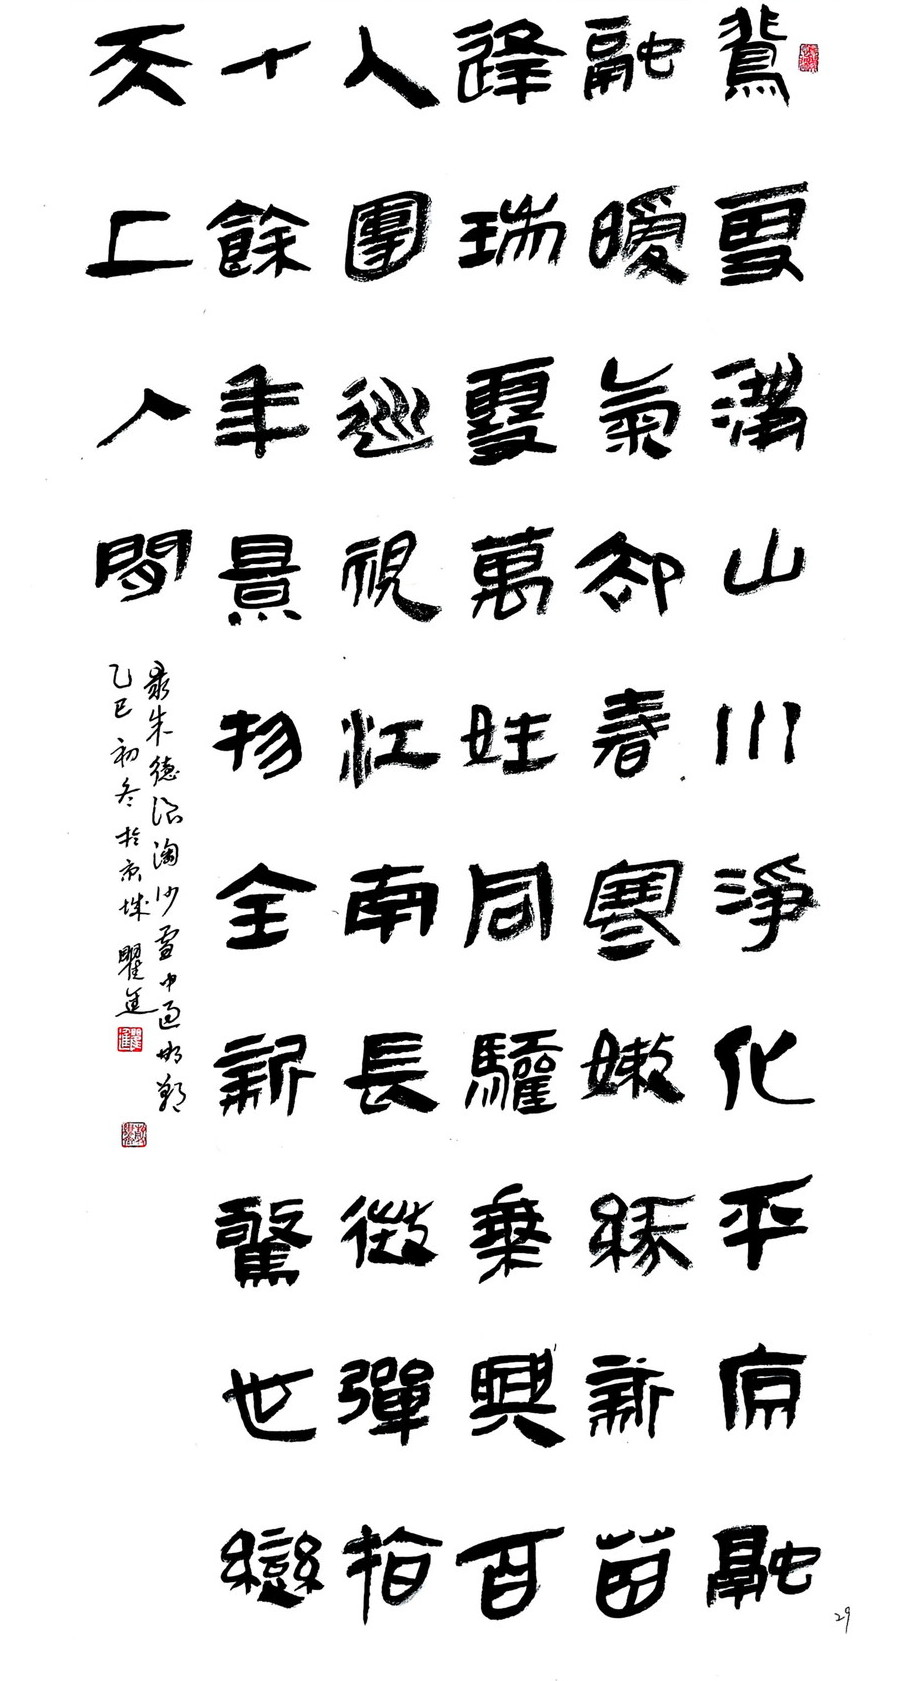 飛雪滿山川淨化平原融
融暖氣卻春寒嫩綠新苗
逢瑞雪萬姓同驩乘興百
人團巡視江南長徵彈指
十餘年景物全新驚世變
天上人間
录朱德浪淘沙雪中過邯鄲
乙巳初冬於京城瞿進
29